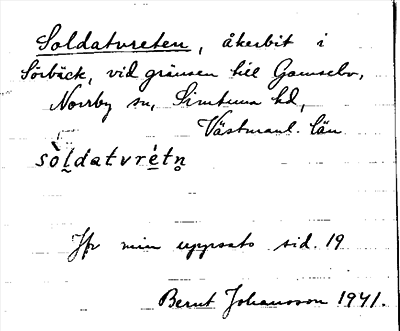 Soldatvreten, åkerbit i
Sörbäck, vid gränsen till Gamsebo,
Norrby sn, Simtuna hd,
Västmanl. län
sòldatvrétn̥
Jfr min uppsats sid. 19
Bernt Johansson 1941.